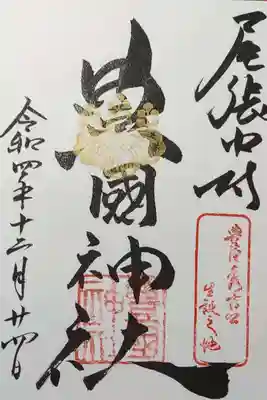 尾張中村
豊臣秀吉公
生誕之地
豊國神社
令和四年十二月廿四日